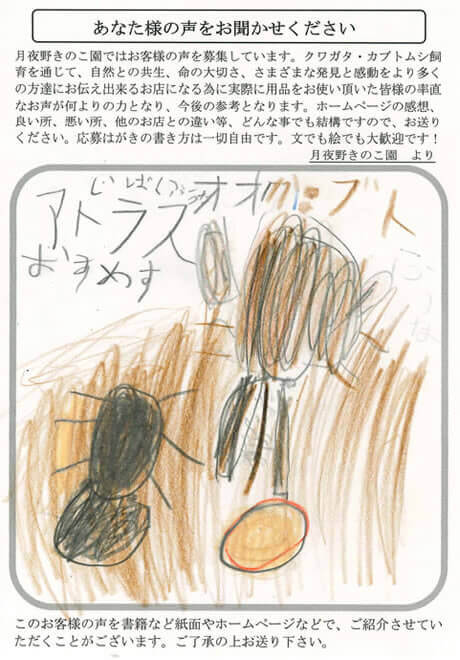 あなた様の声をお聞かせください
月夜野きのこ園ではお客様の声を募集しています。クワガタ・カブトムシ飼
育を通じて、自然との共生、命の大切さ、さまざまな発見と感動をより多く
の方達にお伝え出来るお店になる為に実際に用品をお使い頂いた皆様の率直
なお声が何よりの力となり、今後の参考となります。ホームページの感想、
良い所、悪い所、他のお店との違い等、どんな事でも結構ですので、お送り
ください。応募はがきの書き方は一切自由です。文でも絵でも大歓迎です！
月夜野きのこ園　より
アトラスオオカブト
おすめす
このお客様の声を書籍など紙面やホームページなどで、ご紹介させてい
ただくことがございます。ご了承の上お送り下さい。